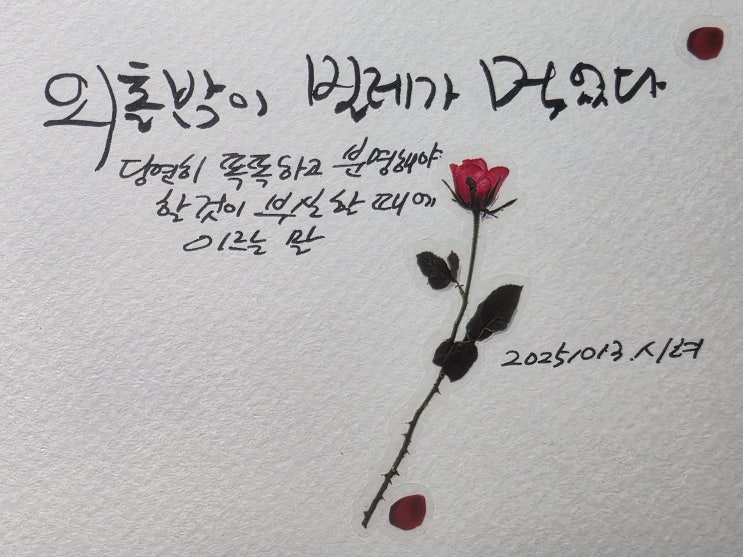 외톨밤이 벌레가 먹었다
당연히 똑똑하고 분명해야
할 것이 부실한 때에
이르는 말
20251013.